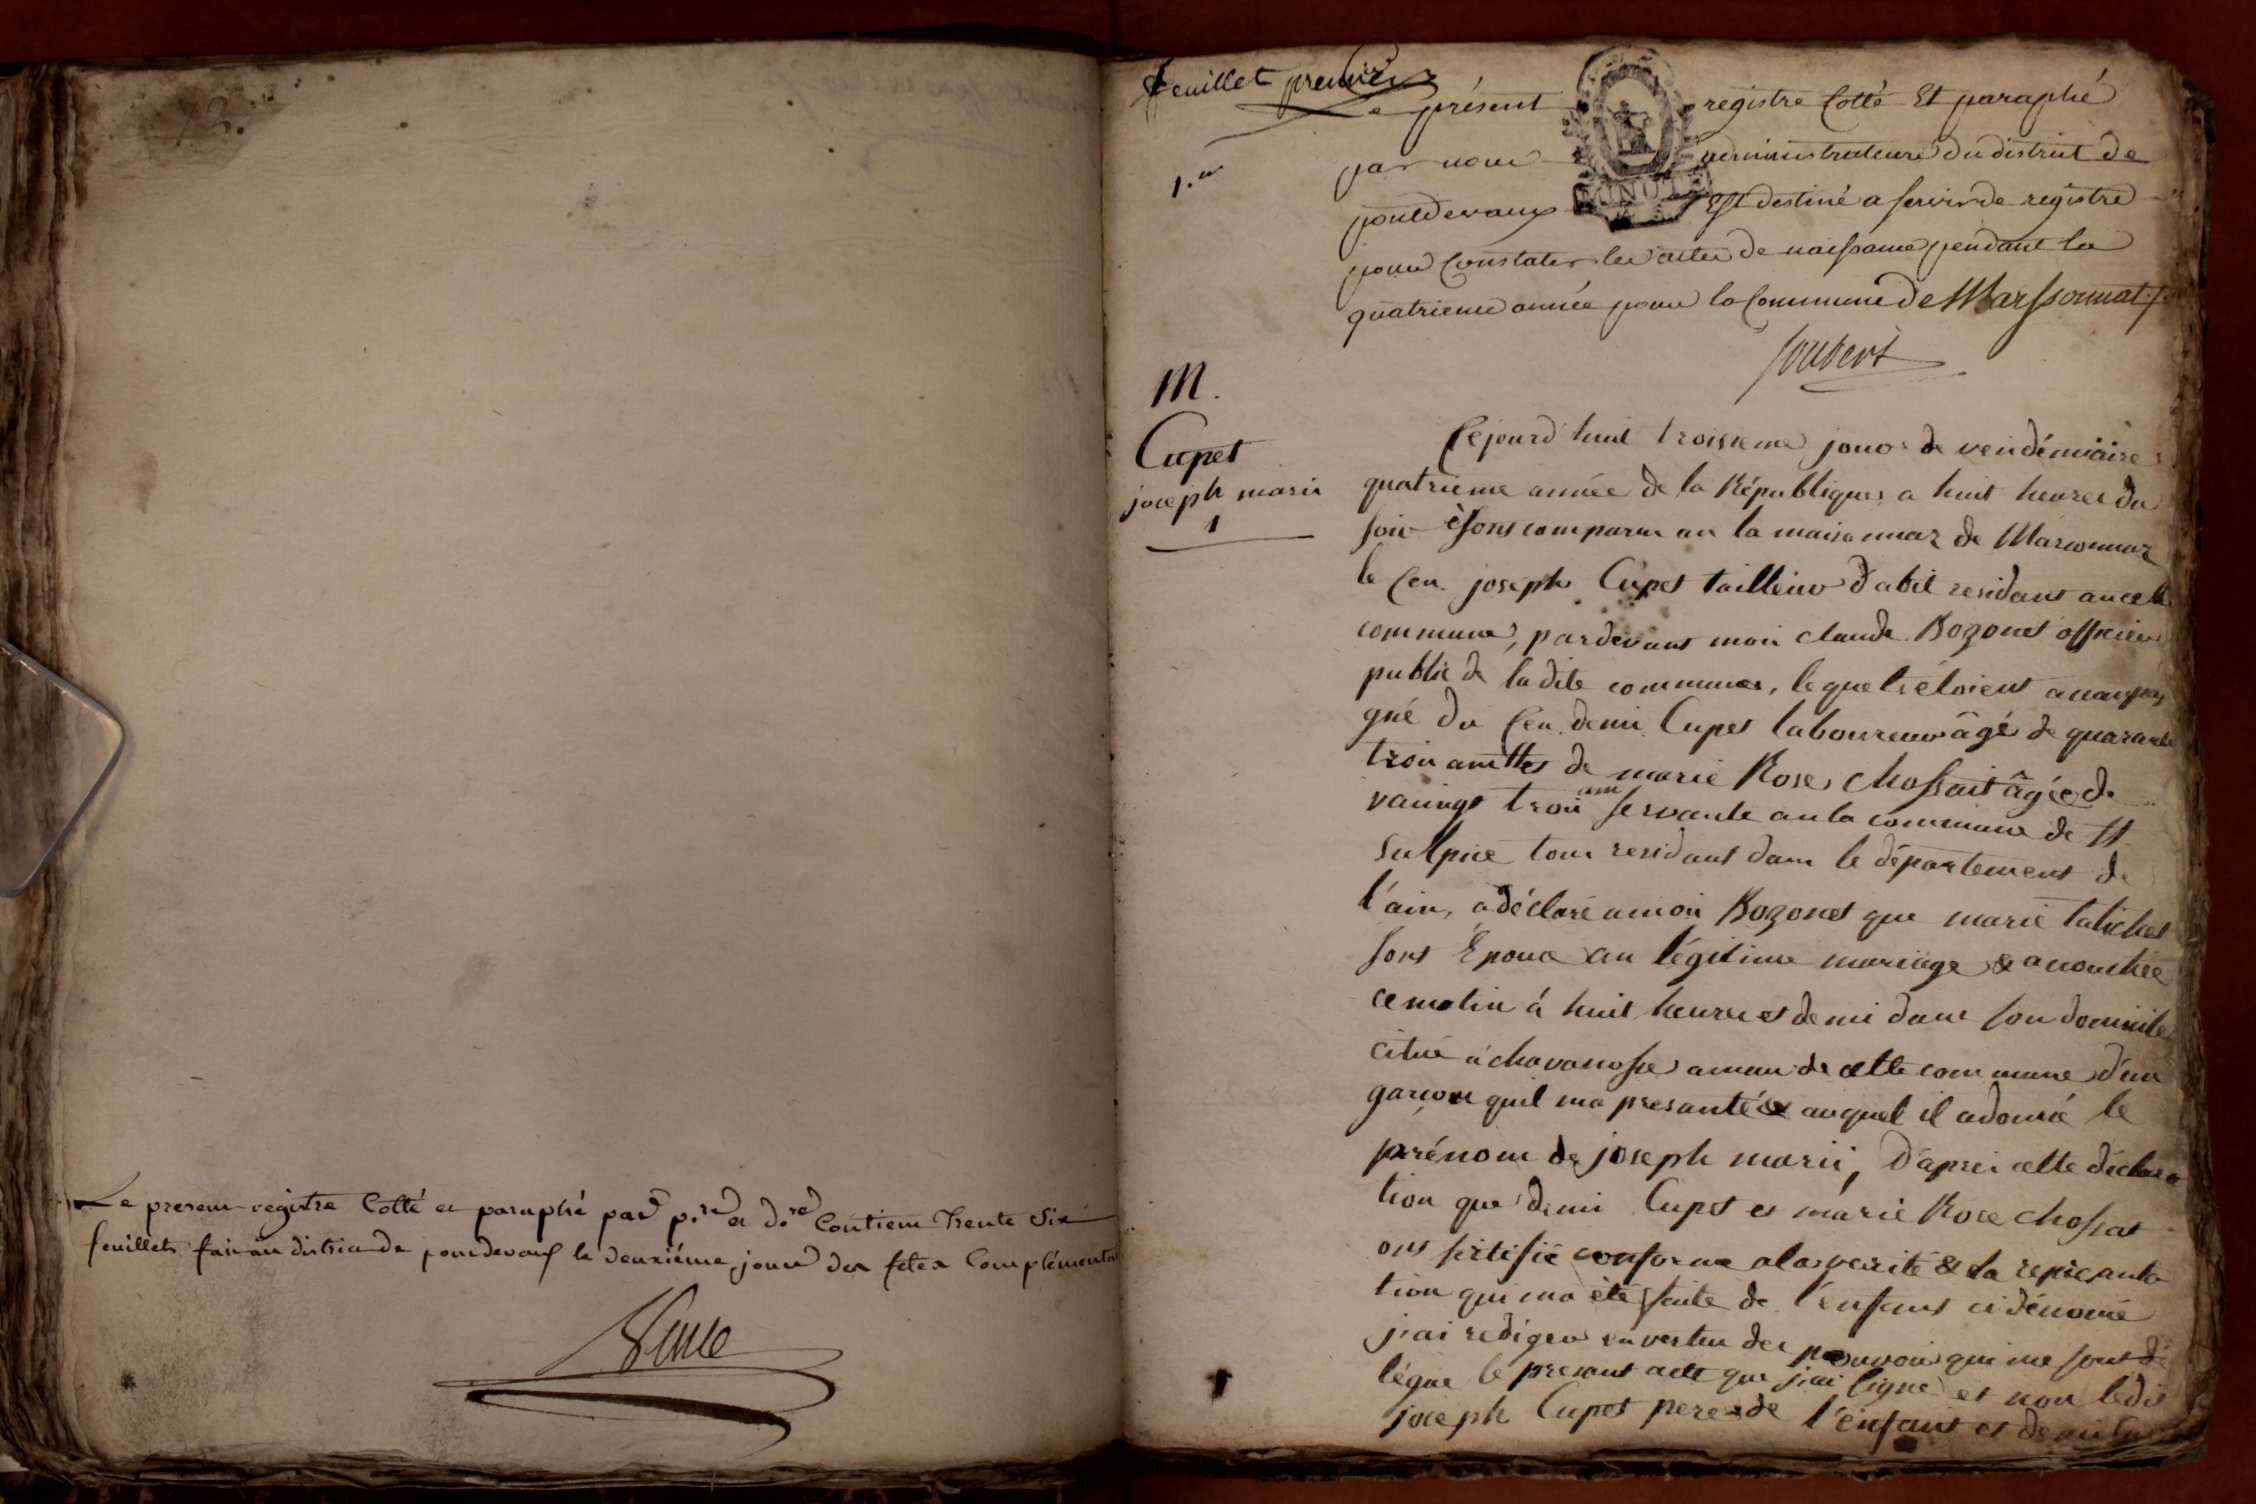 Le present registre Cotté et paraphé par p.re et d.re Contient Trente Six
feuillets fait au district de pontdevaux le deuxiéme jour des fetes Complémentai
feuillet premier
1.er
Le présent registre Cotté Et paraphé
par nous administrateurs du district de
pontdevaux Est destiné a servir de registre
pour Constater les actes de naissance pendant la
quatrieme année pour la Commune de Marssonnat
Joubert
M.
Cupet
joceph marie
1
Cejourd'huit troisieme jour de vendémiaire
quatrieme année de la République, a huit heures du
soir èsons comparu an la maison naz de Marsonnaz
le Cen. joseph Cupet tailleur d'abit residant an cette
commune, pardevant moi claude Bozonet officier
public de la dite commune, lequel s'étoient accompa
gné du Cen. deni Cupet laboureur âgé de quarante
troi ans et de marie Rose, chossait âgée de
vaingt troi ans servante an la commune de St
Sulpice tous residant dans le département de
l'ain, a déclaré a moi Bozonet que marie
sont Epouse an légitime mariage & acouchée
ce matin á huit heures et demi dans son domicile
citué á chavanosse ameau de cette commune d'un
garçon quil ma presanté & auquel il a donné le
prénom de joseph marie, D'aprei cette déclara
tion que deni Cupet et marie Rose chossat
ont sertifié conforme a la verité & la represanta
tion qui ma été faite de l'enfant ci dénomé
j'ai redigé en vertu des pouvoir qui me sont dé
légué le presant acte que j'ai signé et non ledit
joceph Cupet pere de l'enfant et deni Cu